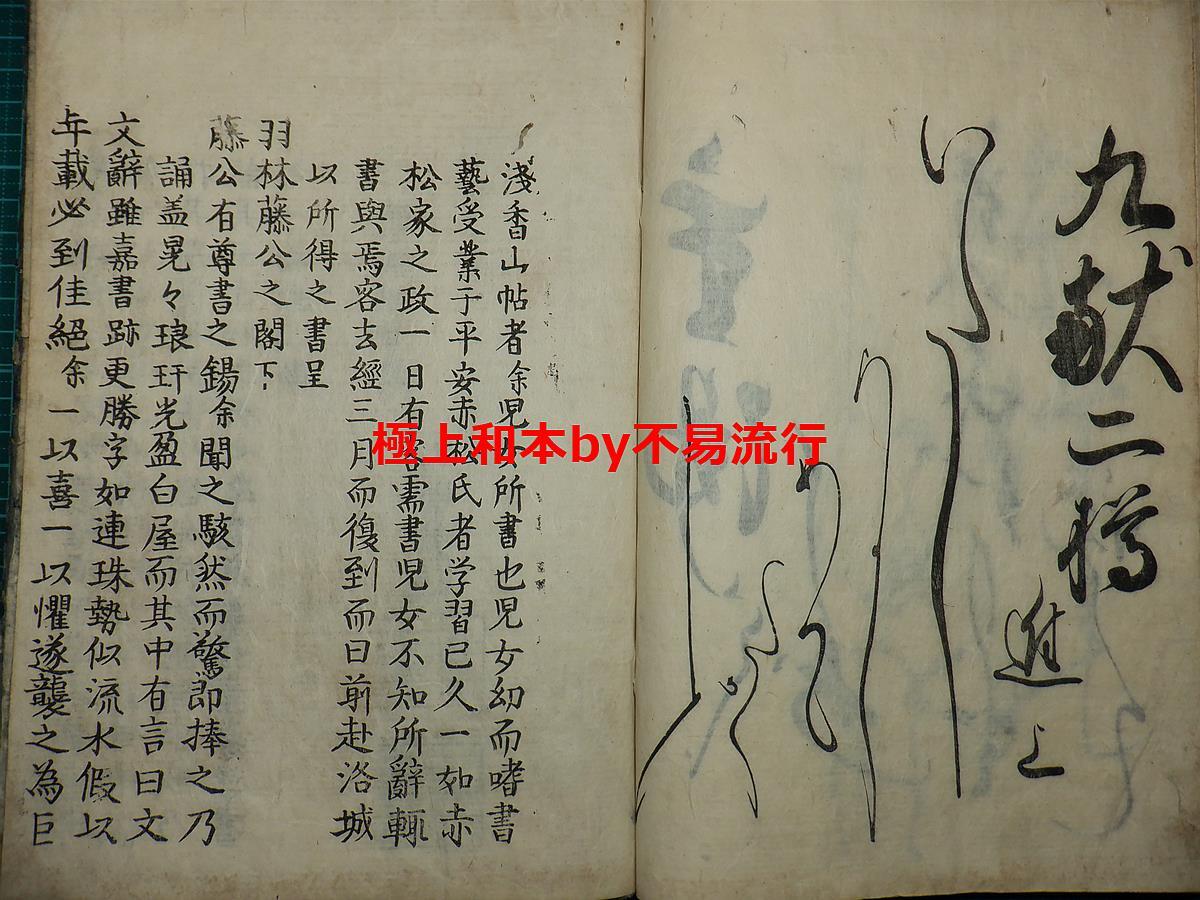 九献二樽
進上
淺香山帖者余児女所書也児女幼而嗜書
藝受業于平安赤松氏者学習已久一如赤
松家之政一日有客需書児女不知所辭輙
書與焉客去經三月而復到而曰前赴洛城
以所得之書呈
羽林藤公之閣下
藤公有尊書之錫余聞之駭然而驚即捧之乃
誦盖晃々琅玕光盈白屋而其中有言曰文
文辭雖嘉書跡更勝字如連珠勢似流水假以
年載必到佳絕余一以喜一以懼遂襲之為巨
極上和本by不易流行